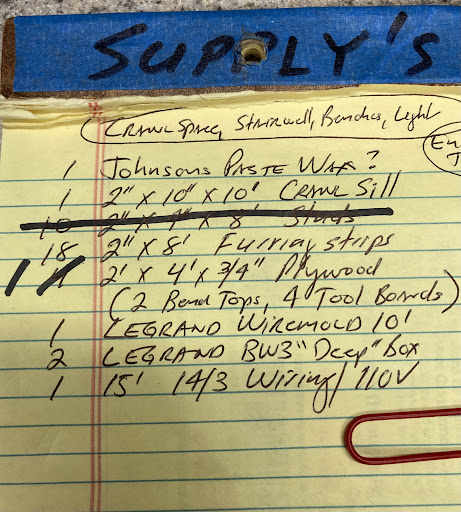 SUPPLY'S
CRAWL SPACE, Stairwell, Benches, Light
1 Johnsons PASTE WAX?
1 2" X 10" X 10' CRAWL Sill
10 2" X 4" X 8' Studs
18 2" X 8' Furring strips
1 2' X 4' X 3/4" Plywood
(2 Bench Tops, 4 Tool Boards)
1 LEGRAND Wiremold 10'
2 LEGRAND BW3 "Deep" Box
1 15' 14/3 Wiring/110V